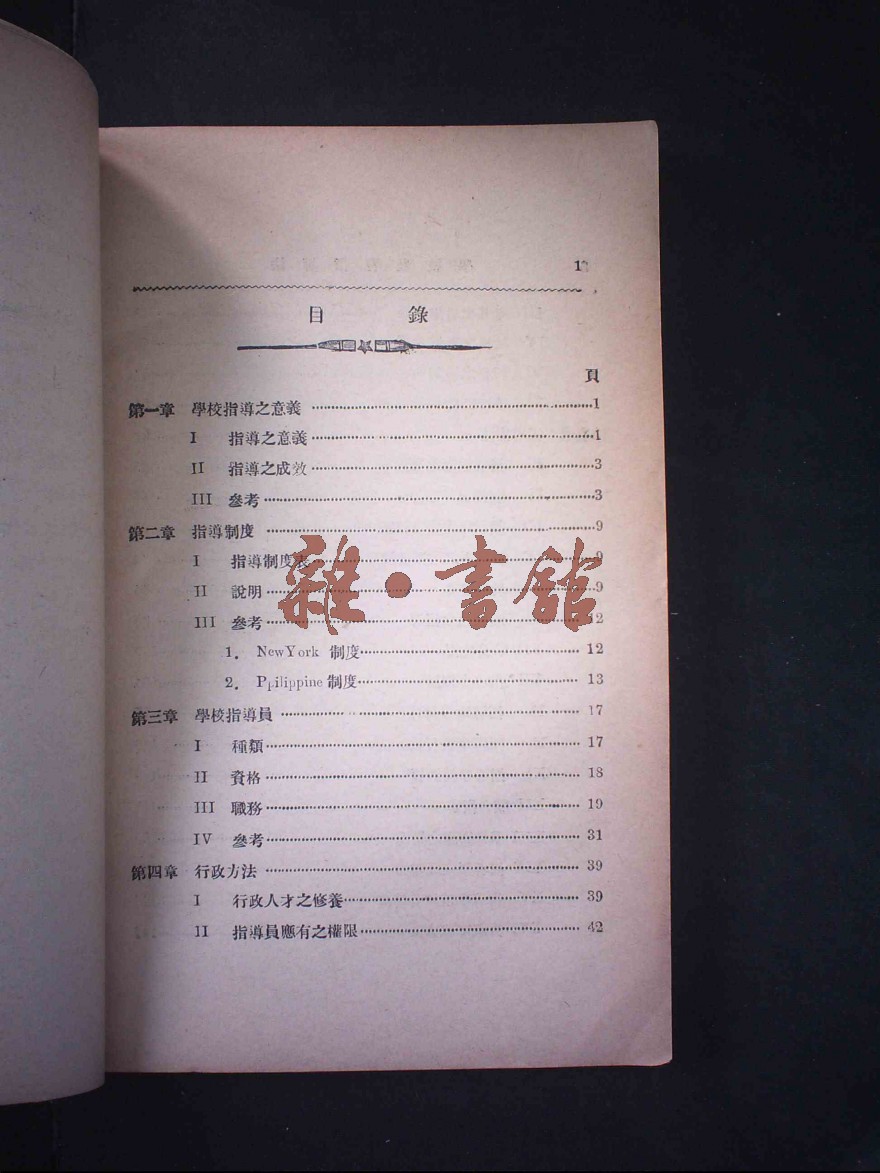 1
目錄
頁
第一章 學校指導之意義 ……1
I 指導之意義 ……1
II 指導之成效 ……3
III 參考 ……3
第二章 指導制度 ……9
I 指導制度表 ……9
II 說明 ……9
III 參考 ……12
雜·書館
1. NewYork 制度 ……12
2. Ppilippine 制度 ……13
第三章 學校指導員 ……17
I 種類 ……17
II 資格 ……18
III 職務 ……19
IV 參考 ……31
第四章 行政方法 ……39
I 行政人才之修養 ……39
II 指導員應有之權限 ……42